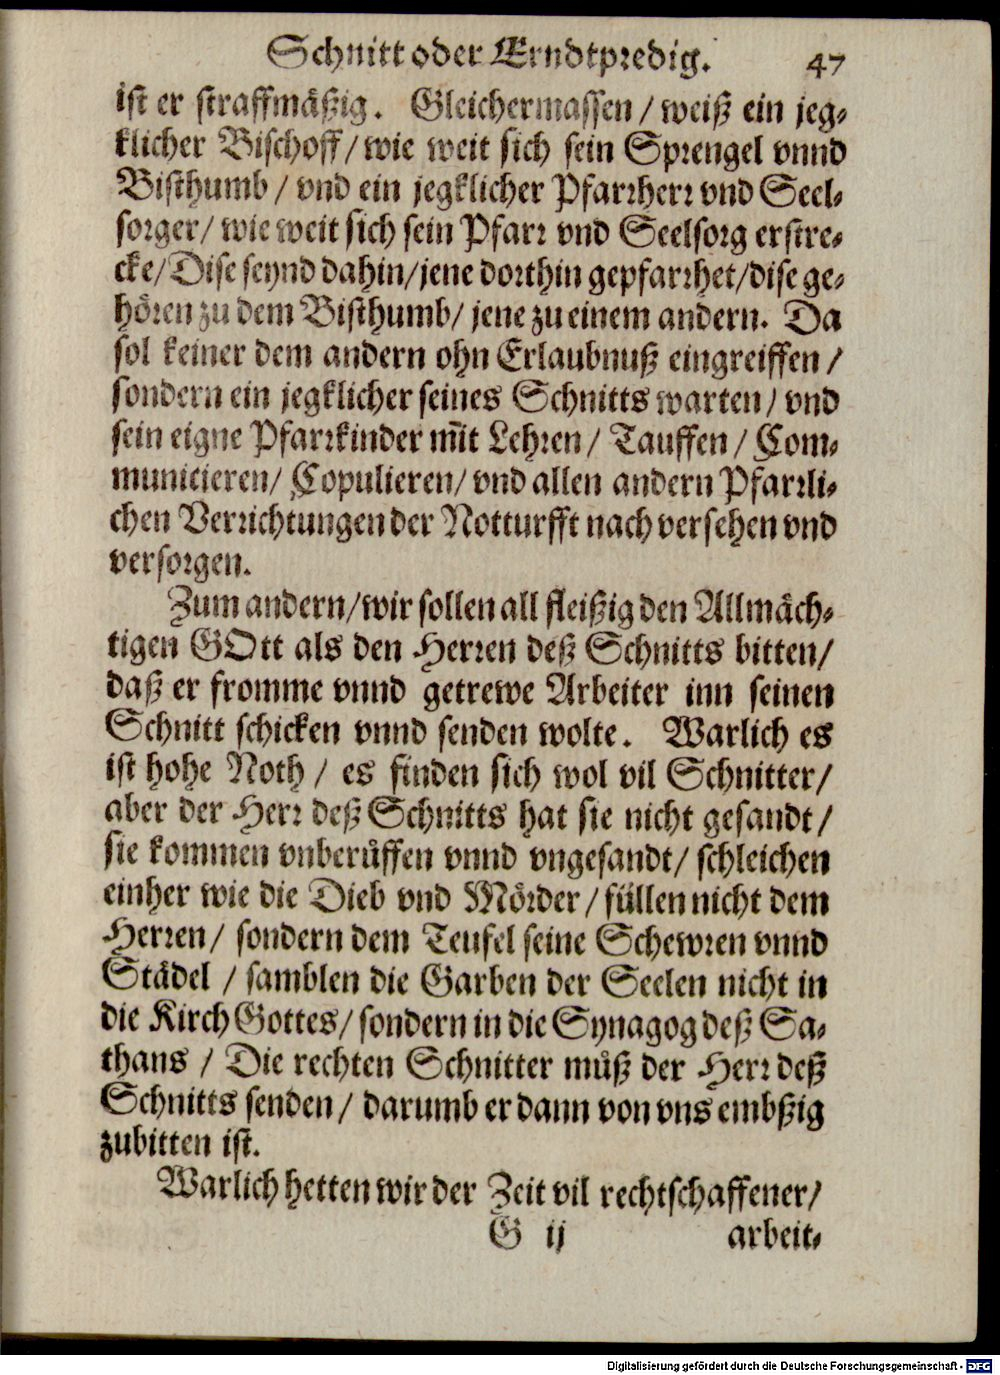 Schnitt oder Erndtpredig. 47
ist er straffmåßig. Gleichermassen / weiß ein jeg-
klicher Bischoff / wie weit sich sein Sprengel vnnd
Bisthumb / vnd ein jegklicher Pfarrherr vnd Seel-
sorger / wie weit sich sein Pfarr vnd Seelsorg erstre-
cke / Dise seynd dahin / jene dorthin gepfarrhet / dise ge-
hören zu dem Bisthumb / jene zu einem andern. Da
sol keiner dem andern ohn Erlaubnuß eingreiffen /
sondern ein jegklicher seines Schnitts warten / vnd
sein eigne Pfarrkinder mit Lehren / Tauffen / Com-
municieren / Copulieren / vnd allen andern Pfarrli-
chen Verrichtungen der Notturfft nach versehen vnd
versorgen.
Zum andern / wir sollen all fleißig den Allmäch-
tigen GOtt als den Herren deß Schnitts bitten /
daß er fromme vnnd getrewe Arbeiter inn seinen
Schnitt schicken vnnd senden wolte. Warlich es
ist hohe Noth / es finden sich wol vil Schnitter /
aber der Herr deß Schnitts hat sie nicht gesandt /
sie kommen vnberůffen vnnd vngesandt / schleichen
einher wie die Dieb vnd Mörder / füllen nicht dem
Herren / sondern dem Teufel seine Schewren vnnd
Städel / samblen die Garben der Seelen nicht in
die Kirch Gottes / sondern in die Synagog deß Sa-
thans / Die rechten Schnitter můß der Herr deß
Schnitts senden / darumb er dann von vns embßig
zubitten ist.
Warlich hetten wir der Zeit vil rechtschaffener /
G ij arbeit-
Digitalisierung gefördert durch die Deutsche Forschungsgemeinschaft - DFG